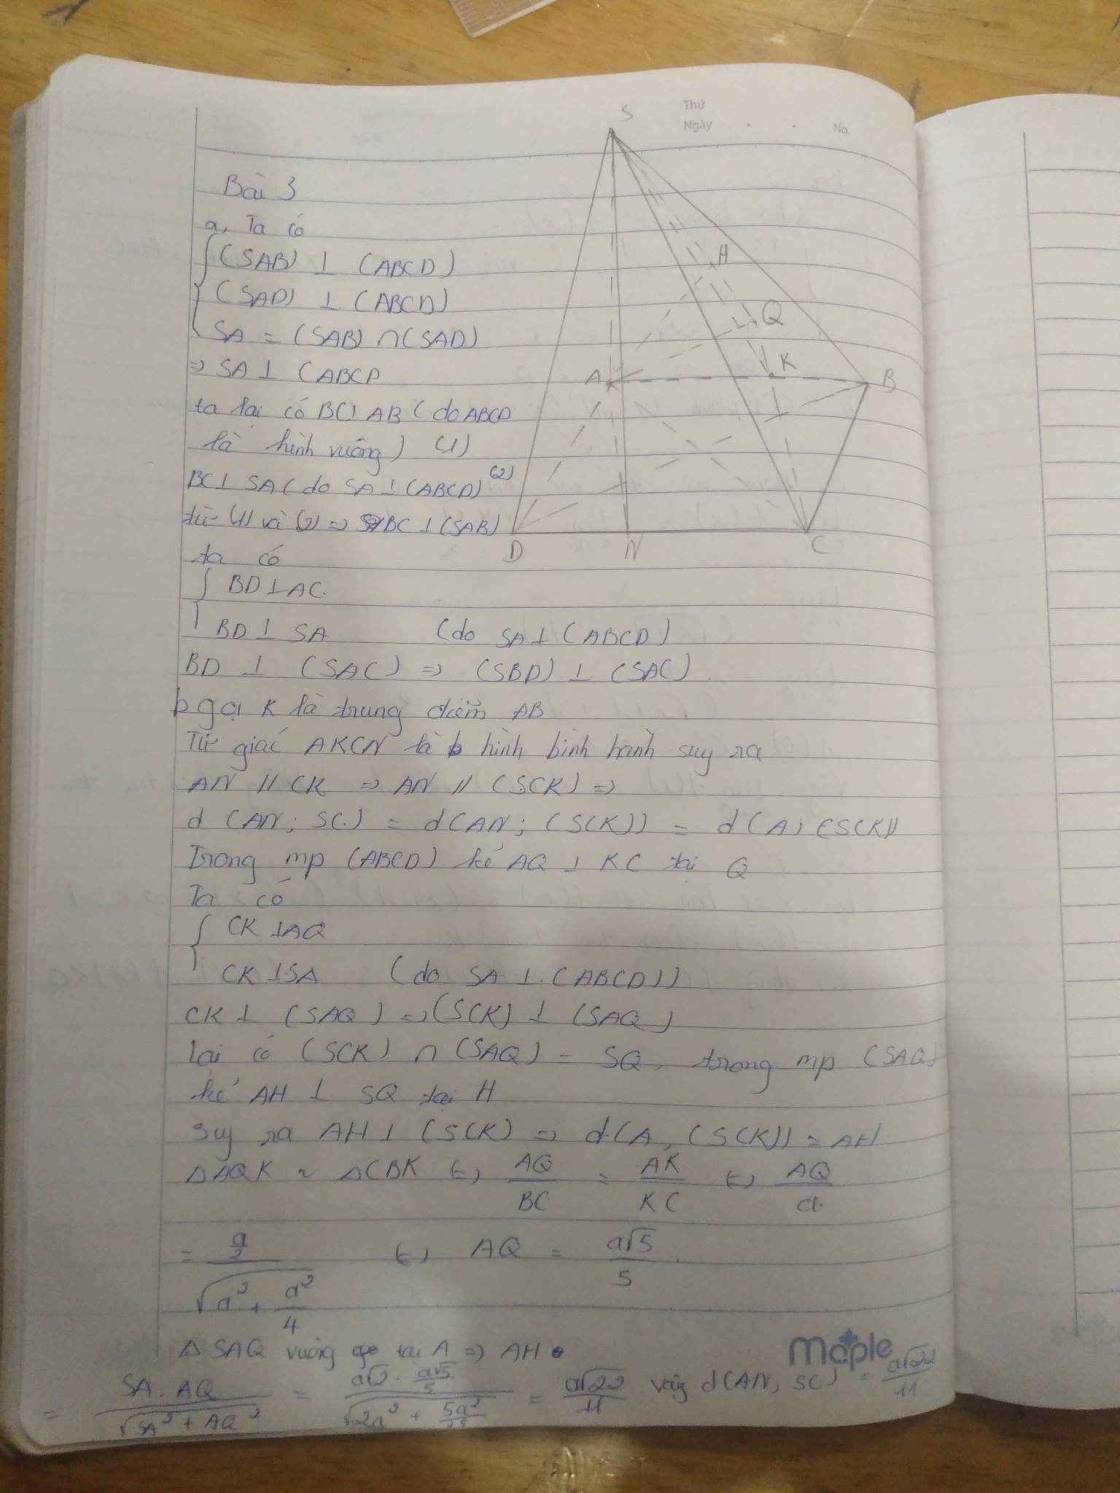 Thứ
Ngày . . No.
S
Bài 3
a, Ta có
(SAB) ⊥ (ABCD)
(SAD) ⊥ (ABCD)
SA = (SAB) ∩ (SAD)
=> SA ⊥ (ABCD
ta lại có BC⊥ AB (do ABCD
là hình vuông) (1)
BC⊥ SA (do SA ⊥ (ABCD) (2)
từ (1) và (2) => BC ⊥ (SAB)
H
Q
A K B
D N C
ta có
{ BD ⊥ AC.
BD ⊥ SA (do SA ⊥ (ABCD)
BD ⊥ (SAC) => (SBD) ⊥ (SAC).
b gọi K là trung điểm AB
Tứ giác AKCN là hình bình hành suy ra
AN // CK => AN // (SCK) =>
d (AN; SC) = d(AN; (SCK)) = d(A; (SCK))
Trong mp (ABCD) kẻ AQ ⊥ KC tại Q
Ta có
{ CK ⊥ AQ
CK ⊥ SA (do SA ⊥ (ABCD))
CK ⊥ (SAQ) => (SCK) ⊥ (SAQ)
lại có (SCK) ∩ (SAQ) = SQ, trong mp (SAQ)
kẻ AH ⊥ SQ tại H
Suy ra AH ⊥ (SCK) => d(A, (SCK)) = AH
Δ AQK ~ ΔCBK (=) AQ/BC = AK/KC (=) AQ/a
= (a/2)/√(a² + a²/4) (=) AQ = a√5/5.
Δ SAQ vuông tại A => AH
= SA . AQ/√(SA² + AQ²) = (a√2 . a√5/5)/√(2a² + 5a²/25) = a√22/11 vậy d(AN, SC) = a√22/11
Maple